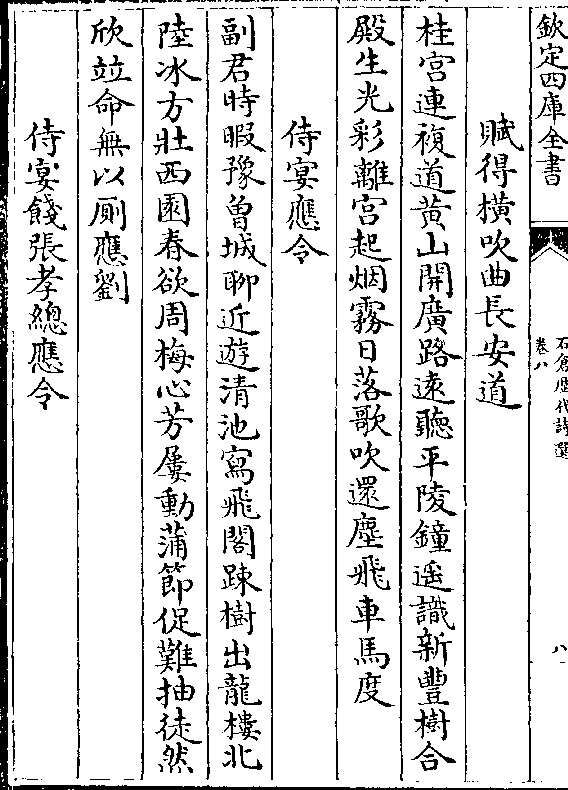 欽定四庫全書
石倉歷代詩選
卷八
八
賦得橫吹曲長安道
桂宮連複道黃山開廣路遠聽平陵鐘遥識新豐樹合
殿生光彩離宮起烟霧日落歌吹還塵飛車馬度
侍宴應令
副君時暇豫曾城聊近遊清池寫飛閣踈樹出龍樓北
陸冰方壯西園春欲周梅心芳屢動蒲節促難抽徒然
欣竝命無以厠應劉
侍宴餞張孝總應令